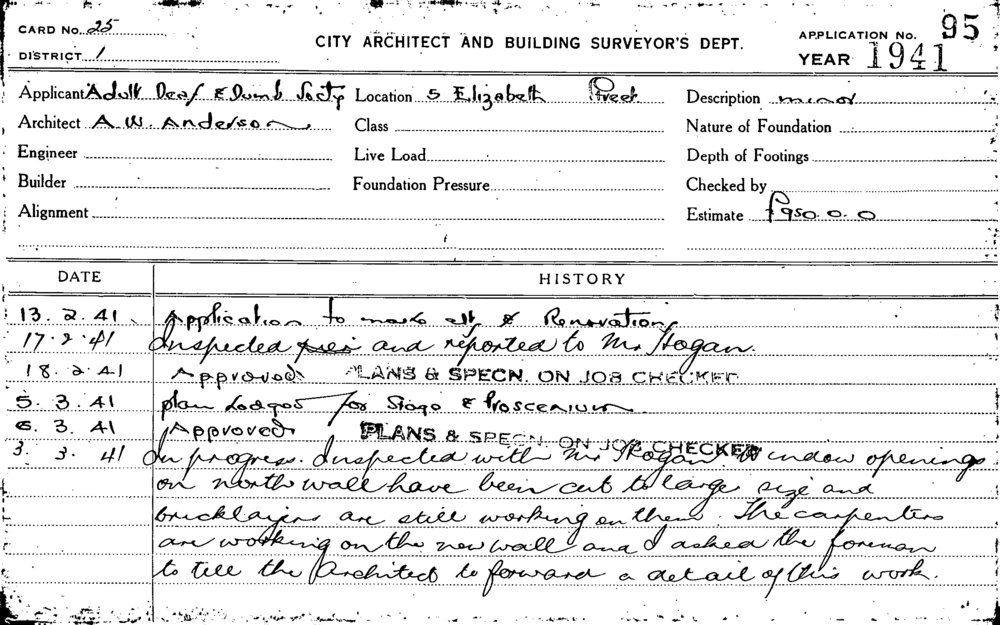 CARD No. 25
DISTRICT 1
CITY ARCHITECT AND BUILDING SURVEYOR'S DEPT.
APPLICATION No. 95
YEAR 1941
Applicant Adult Deaf & Dumb Socty Location 5 Elizabeth Street Description minor
Architect A. W. Anderson Class Nature of Foundation
Engineer Live Load Depth of Footings
Builder Foundation Pressure Checked by
Alignment Estimate £950.0.0
DATE HISTORY
13.2.41 Application to make alt & Renovation
17.2.41 Inspected and reported to Mr Hogan.
18.2.41 Approved PLANS & SPECN. ON JOB CHECKED
5.3.41 plan Lodged for Stage & Proscenium
6.3.41 Approved PLANS & SPECN. ON JOB CHECKED
3.3.41 In progress. Inspected with Mr Hogan. Window openings
on north wall have been cut to large size and
bricklayers are still working on them. The carpenters
are working on the new wall and I asked the foreman
to tell the Architect to forward a detail of this work.